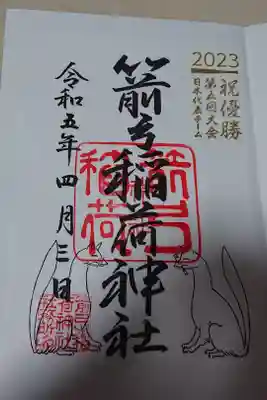 2023
祝優勝
第五回大会
日本代表チーム
箭弓稲荷神社
令和五年四月三日
箭弓
稲荷